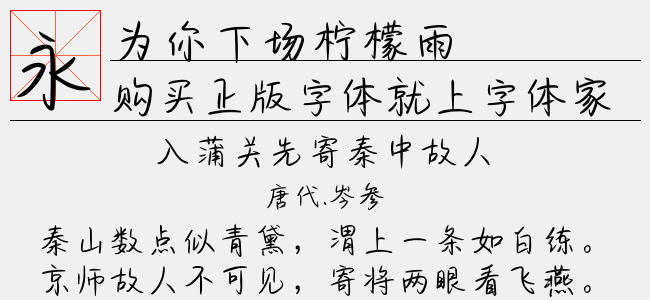 永
为你下场柠檬雨
购买正版字体就上字体家
入蒲关先寄秦中故人
唐代.岑参
秦山数点似青黛，渭上一条如白练。
京师故人不可见，寄将两眼看飞燕。